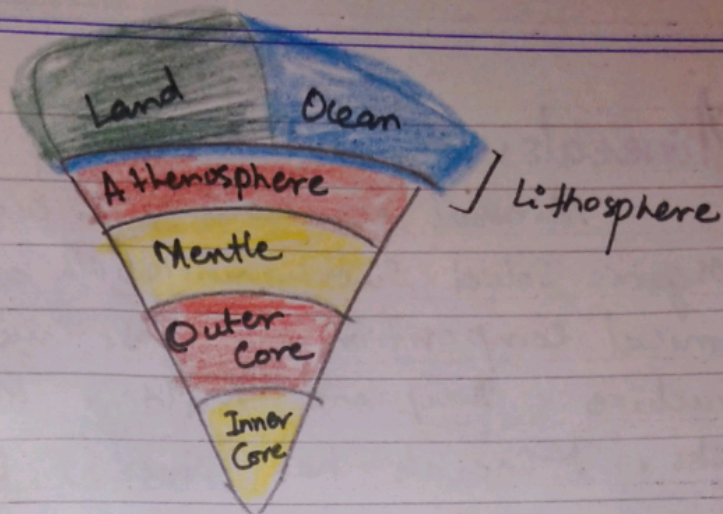 Land
Ocean
Athenosphere
Lithosphere
Mentle
Outer
Core
Inner
Core